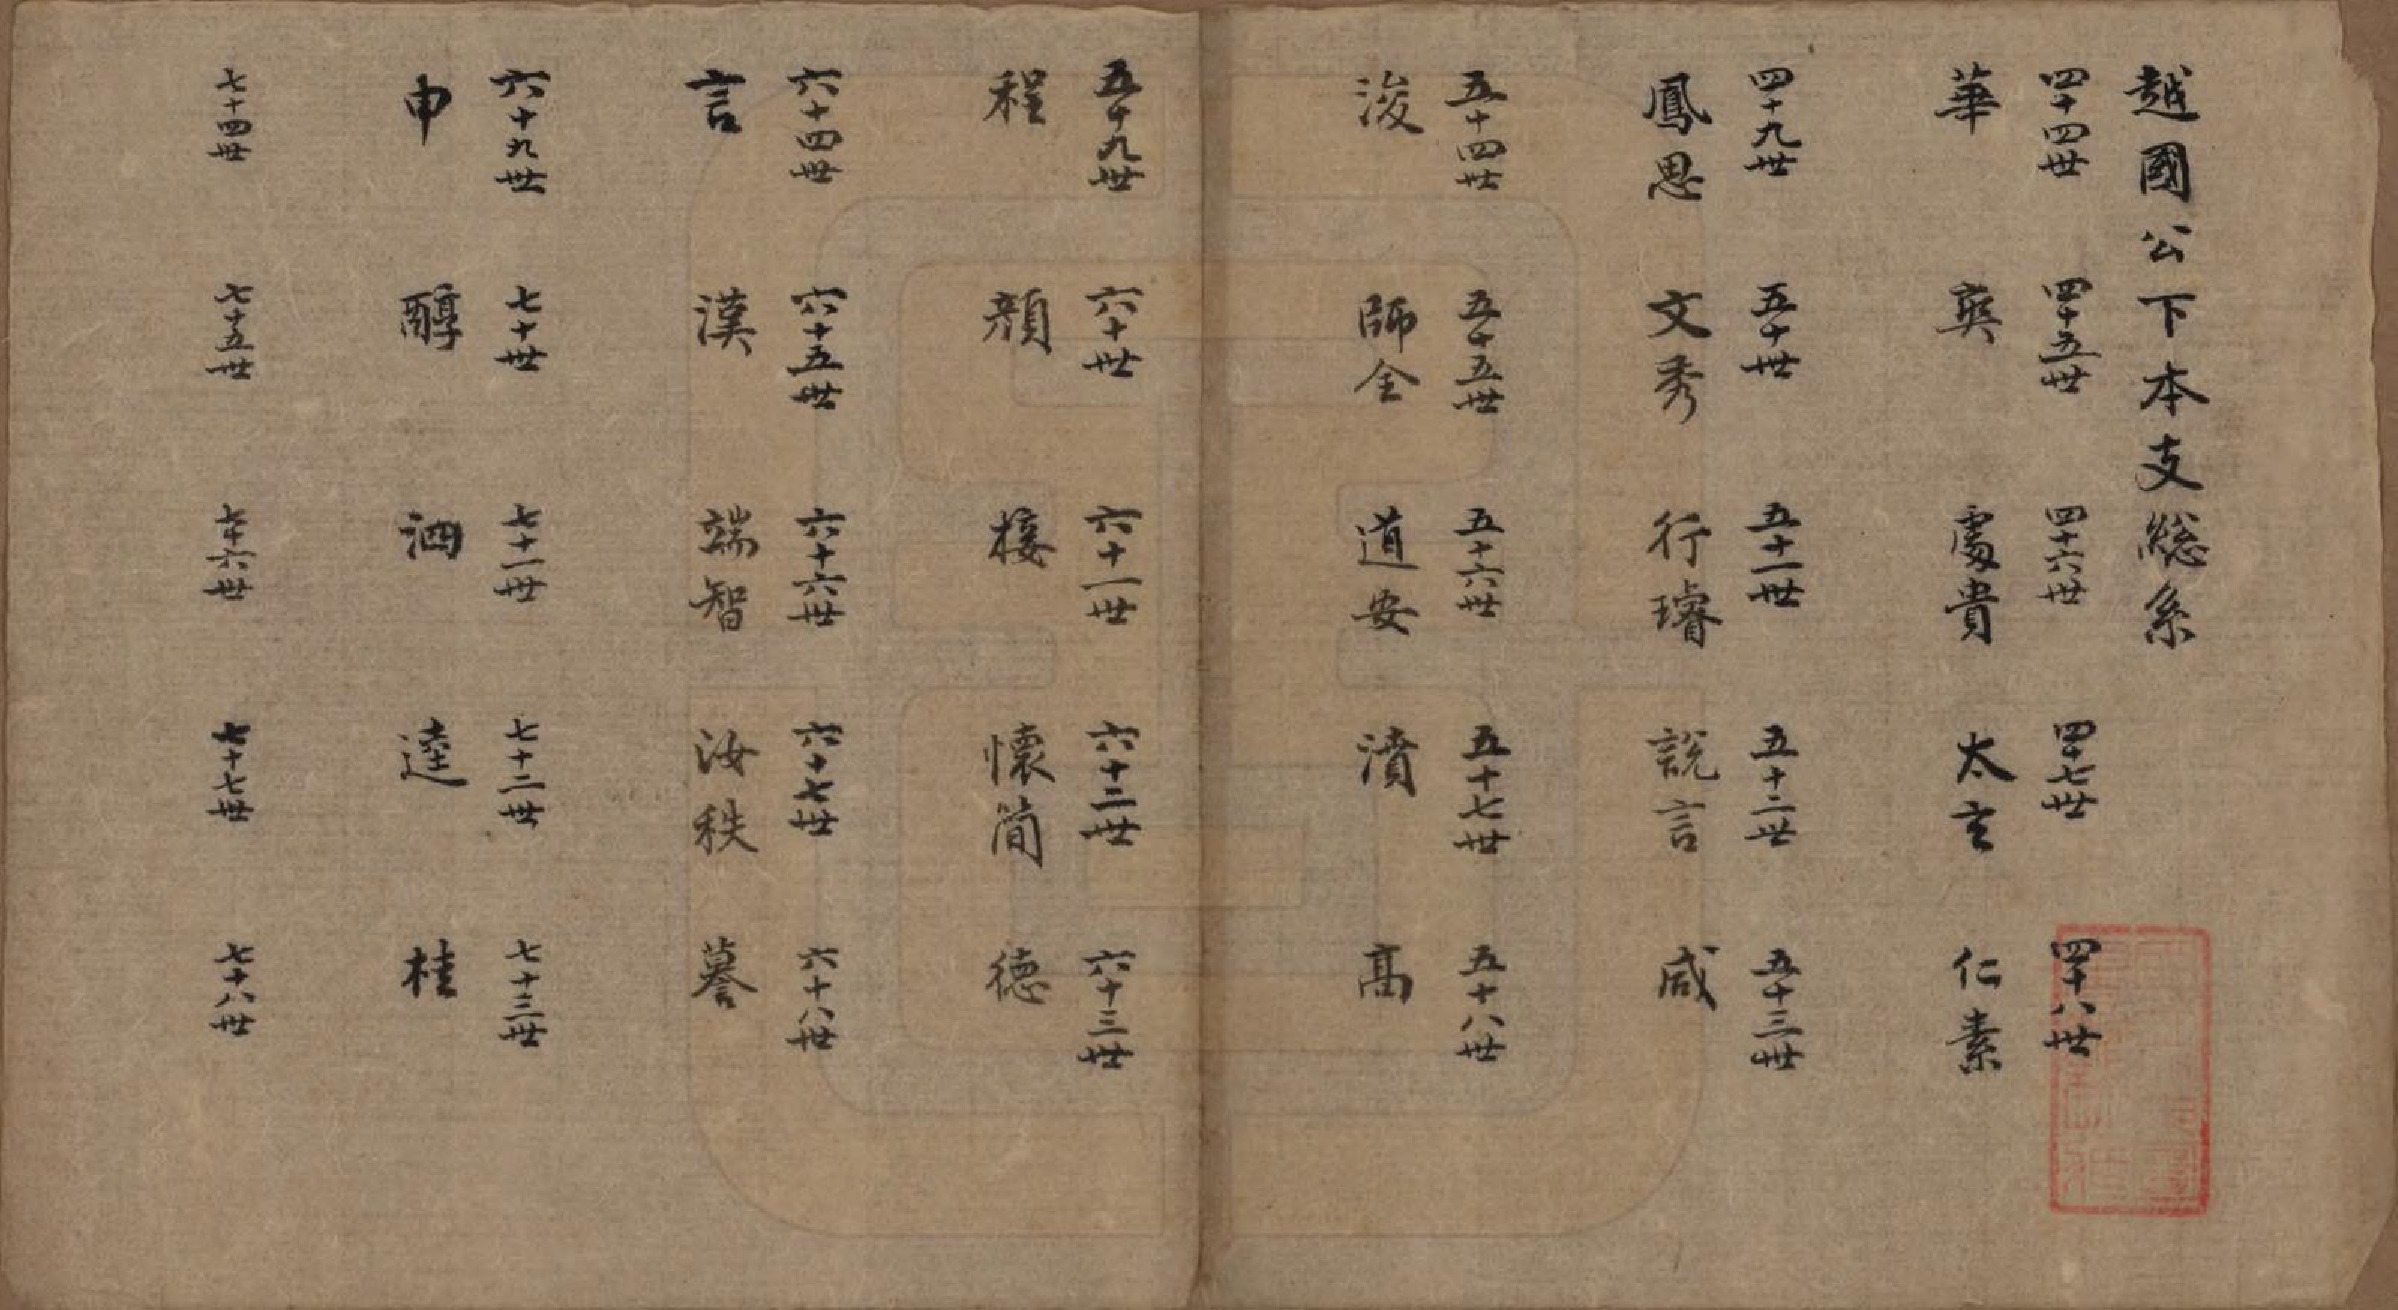 越國公下本支總系
四十四世 四十五世 四十六世 四十七世 四十八世
華 爽 處貴 太玄 仁素
四十九世 五十世 五十一世 五十二世 五十三世
鳳思 文秀 行璿 說言 咸
五十四世 五十五世 五十六世 五十七世 五十八世
浚 師全 道安 濆 高
五十九世 六十世 六十一世 六十二世 六十三世
程 顏 接 懷簡 德
六十四世 六十五世 六十六世 六十七世 六十八世
言 漢 端智 汝秩 謩
六十九世 七十世 七十一世 七十二世 七十三世
申 醇 泗 逵 桂
七十四世 七十五世 七十六世 七十七世 七十八世